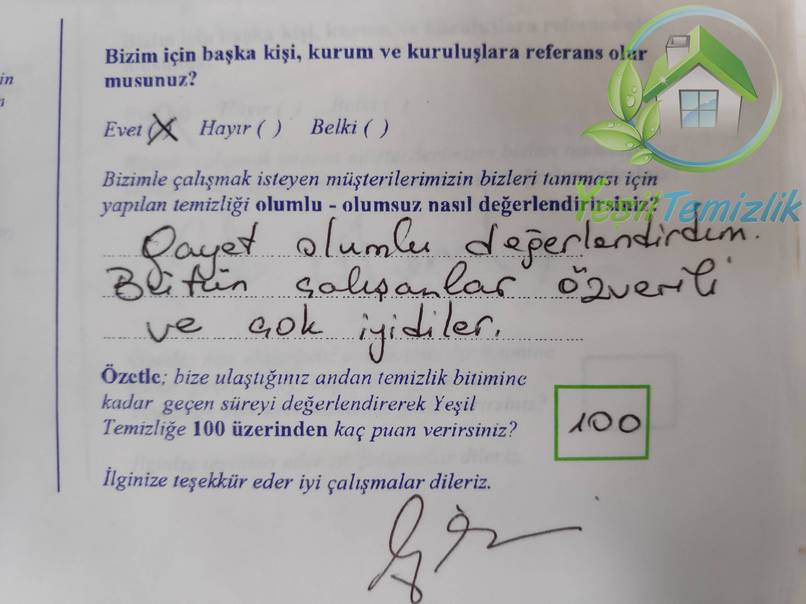 in
Bizim için başka kişi, kurum ve kuruluşlara referans olur
musunuz?
Evet (X) Hayır ( ) Belki ( )
Bizimle çalışmak isteyen müşterilerimizin bizleri tanıması için
yapılan temizliği olumlu - olumsuz nasıl değerlendirirsiniz?
YeşilTemizlik
Gayet olumlu değerlendirdim.
Bütün çalışanlar özverili
ve çok iyidiler.
Özetle; bize ulaştığınız andan temizlik bitimine
kadar geçen süreyi değerlendirerek Yeşil
Temizliğe 100 üzerinden kaç puan verirsiniz?
100
İlginize teşekkür eder iyi çalışmalar dileriz.